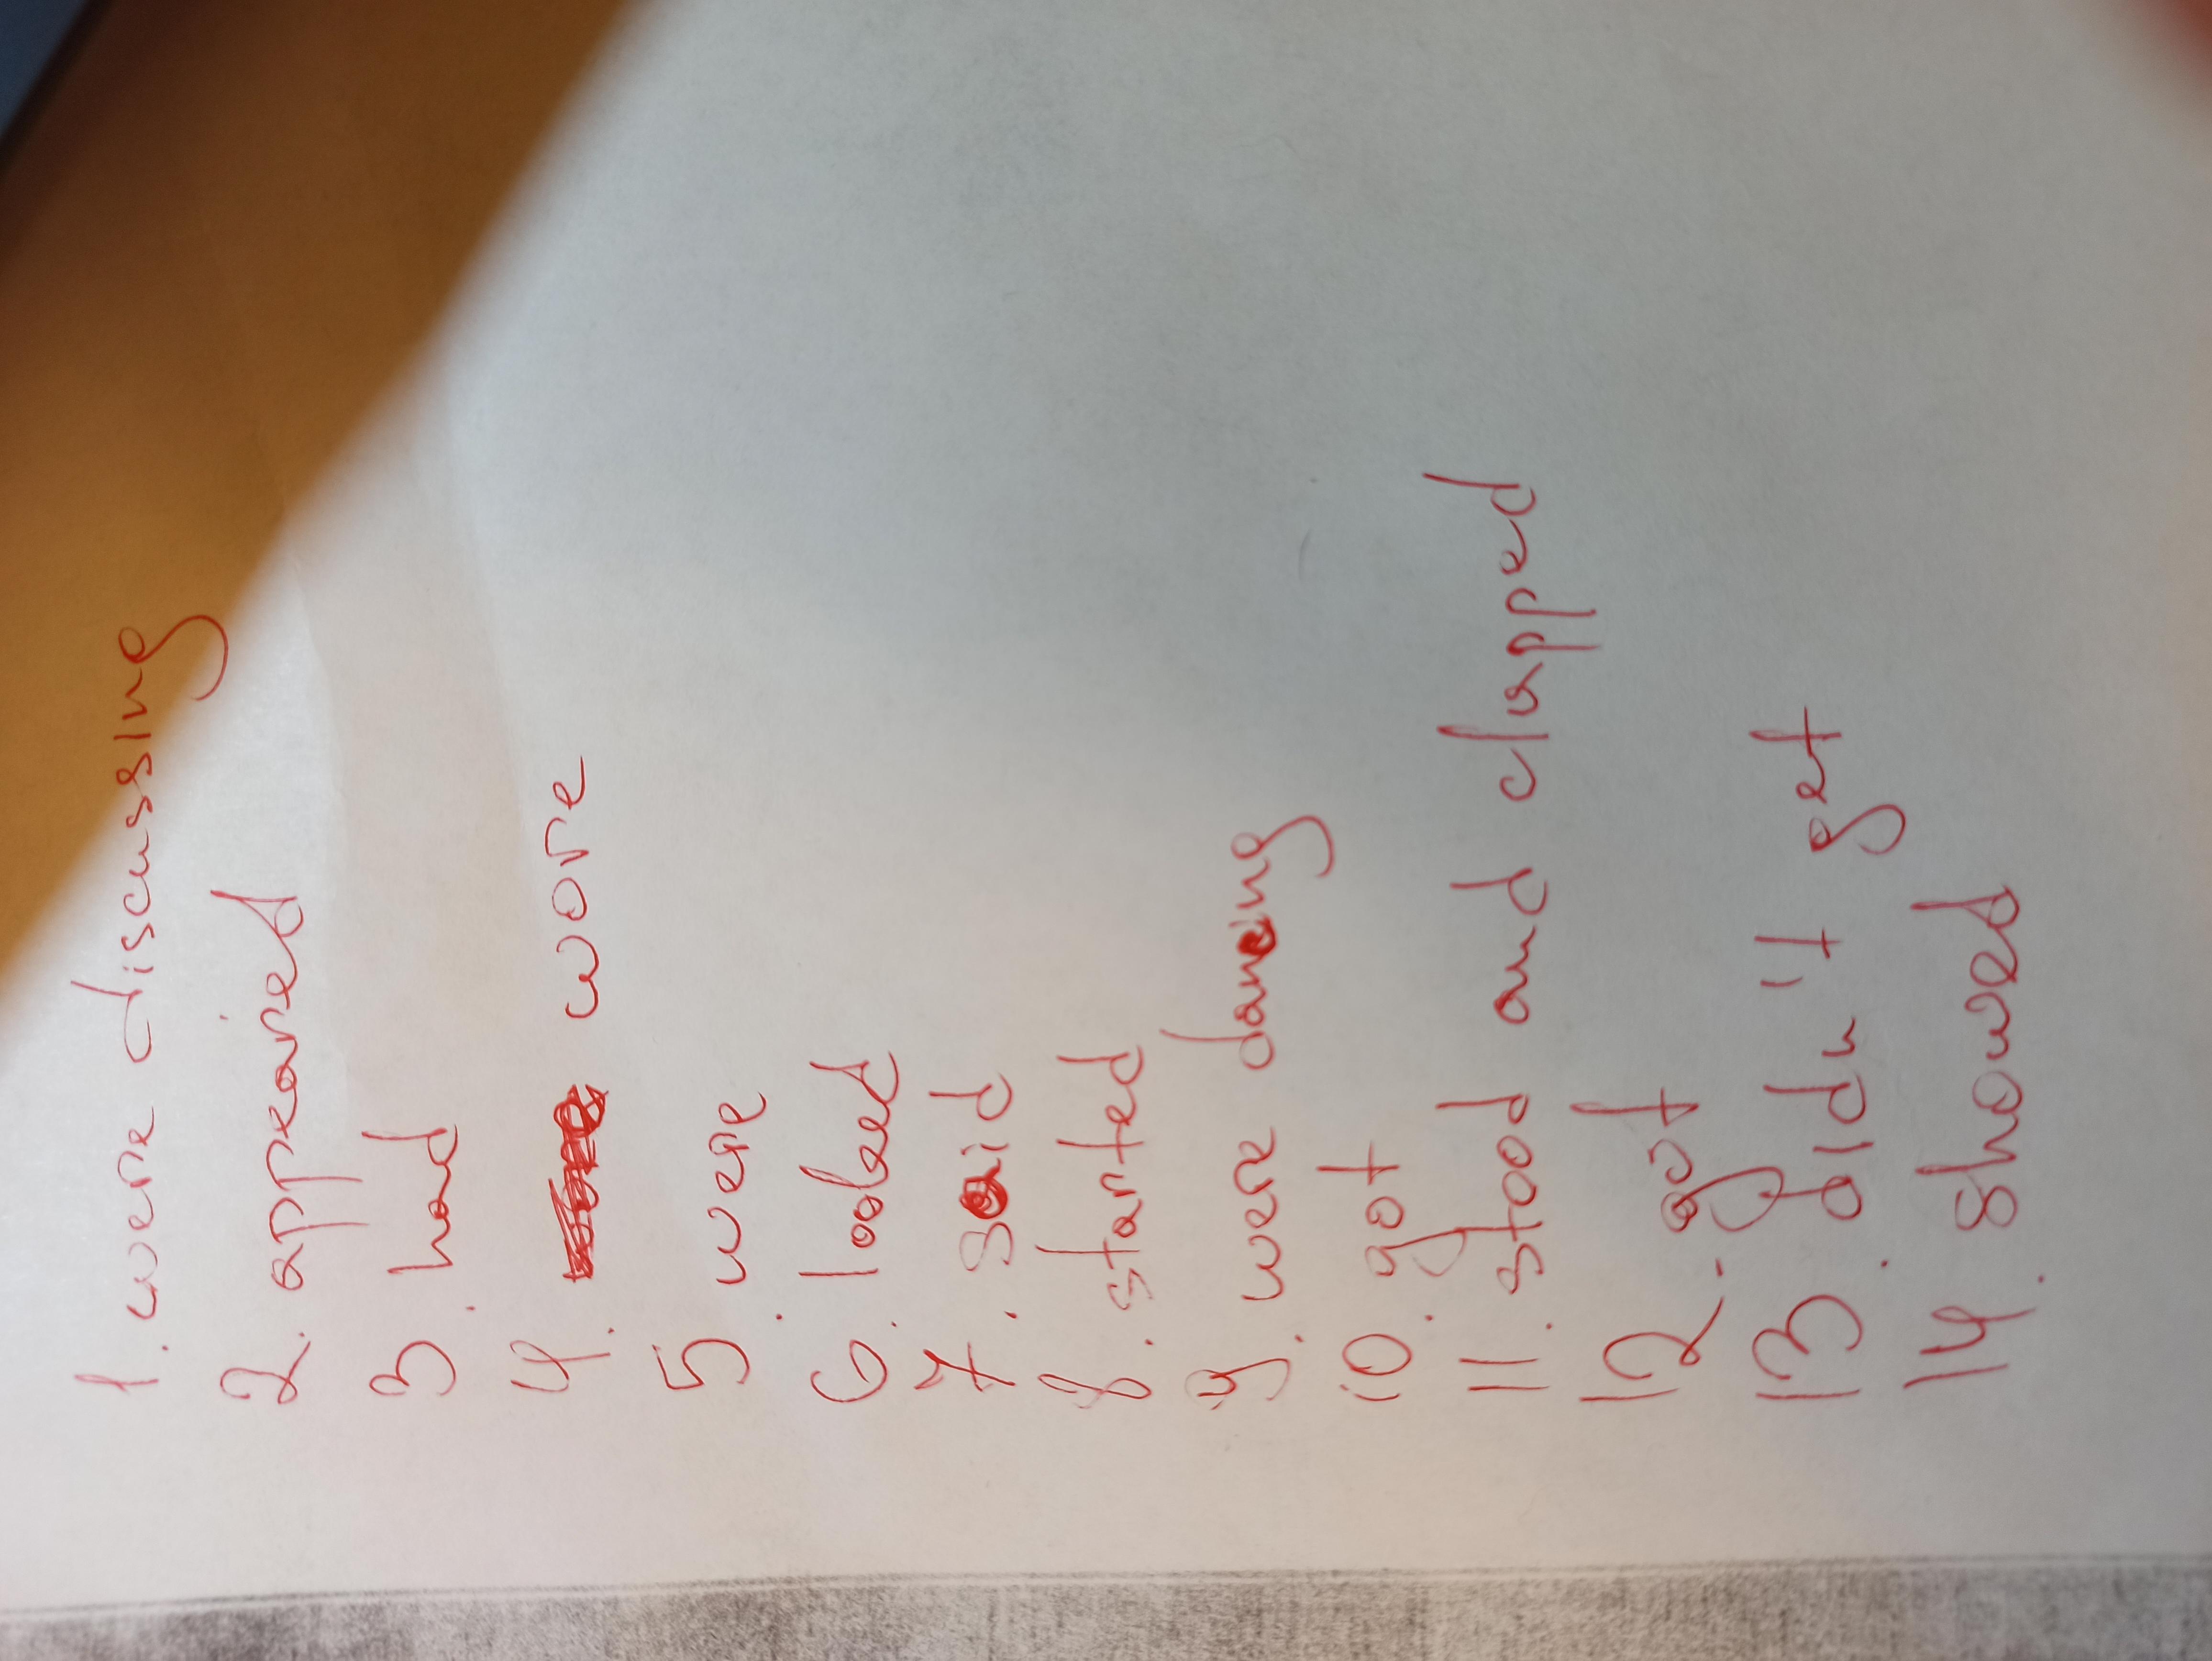 1. were discussing
2. appeared
3. had
4. wore
5. were
6. looked
7. said
8. started
9. were dancing
10. got
11. stood and clapped
12. got
13. didn't get
14. showed